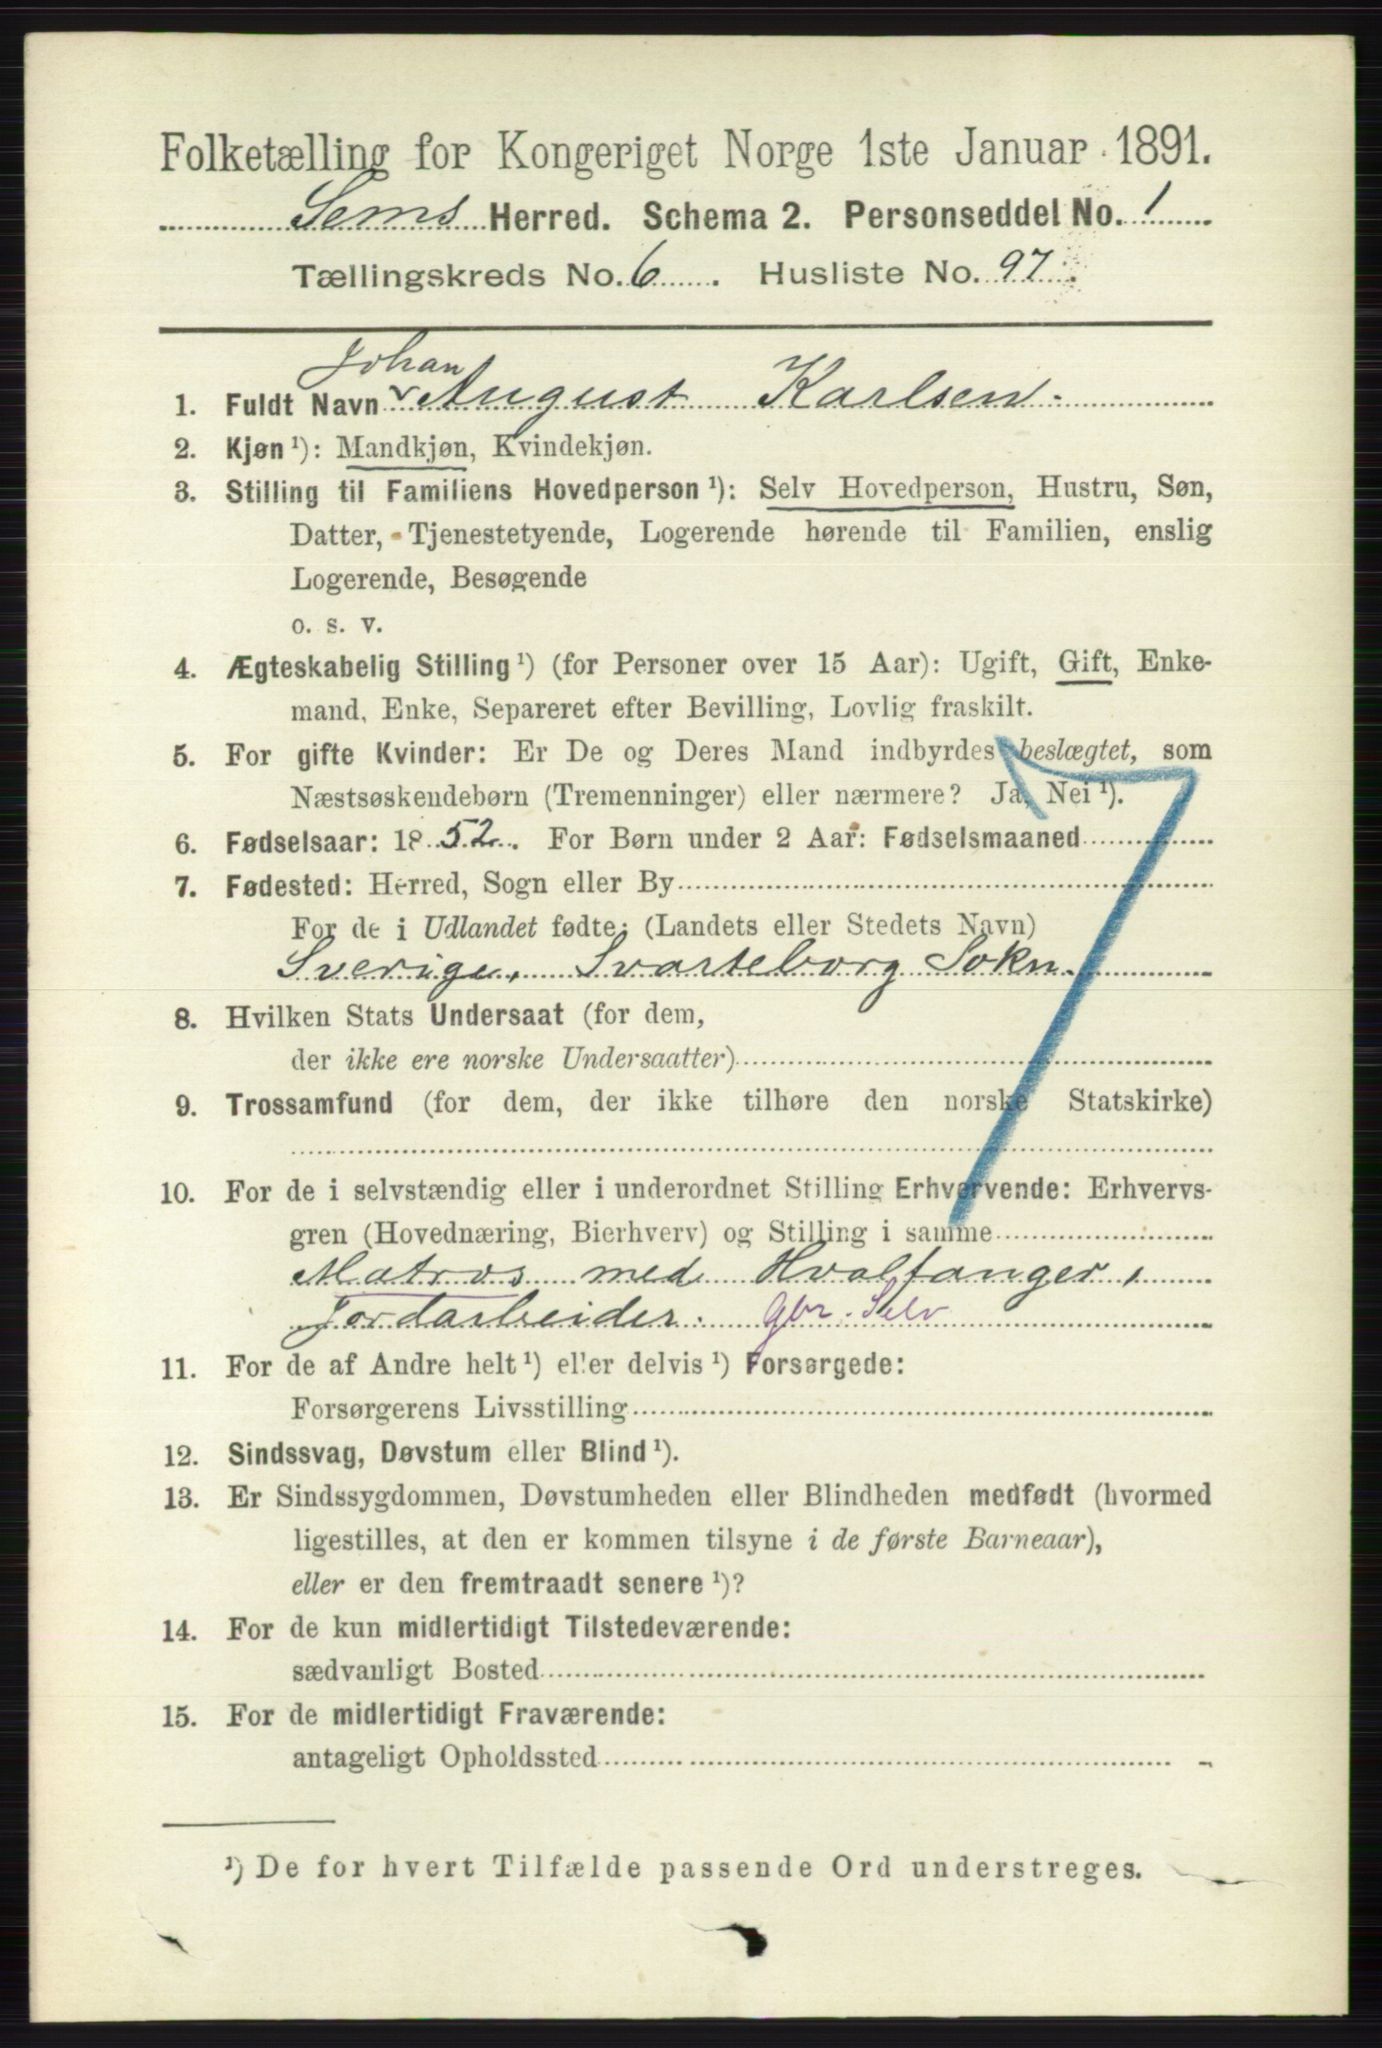 Folketælling for Kongeriget Norge 1ste Januar 1891.
Sems Herred. Schema 2. Personseddel No. 1
Tællingskreds No. 6. Husliste No. 97.
Johan
1. Fuldt Navn August Karlsen.
2. Kjøn ¹): Mandkjøn, Kvindekjøn.
3. Stilling til Familiens Hovedperson ¹): Selv Hovedperson, Hustru, Søn,
Datter, Tjenestetyende, Logerende hørende til Familien, enslig
Logerende, Besøgende
o. s. v.
4. Ægteskabelig Stilling ¹) (for Personer over 15 Aar): Ugift, Gift, Enke-
mand, Enke, Separeret efter Bevilling, Lovlig fraskilt.
5. For gifte Kvinder: Er De og Deres Mand indbyrdes beslægtet, som
Næstsøskendebørn (Tremenninger) eller nærmere? Ja, Nei ¹).
6. Fødselsaar: 1852. For Børn under 2 Aar: Fødselsmaaned
7. Fødested: Herred, Sogn eller By
For de i Udlandet fødte: (Landets eller Stedets Navn)
Sverige, Svarteborg Sokn.
8. Hvilken Stats Undersaat (for dem,
der ikke ere norske Undersaatter)
9. Trossamfund (for dem, der ikke tilhøre den norske Statskirke)
10. For de i selvstændig eller i underordnet Stilling Erhvervende: Erhvervs-
gren (Hovednæring, Bierhverv) og Stilling i samme
Matros med Hvalfanger,
Jordarbeider. gbr. Selv
11. For de af Andre helt ¹) eller delvis ¹) Forsørgede:
Forsørgerens Livsstilling
12. Sindssvag, Døvstum eller Blind ¹).
13. Er Sindssygdommen, Døvstumheden eller Blindheden medfødt (hvormed
ligestilles, at den er kommen tilsyne i de første Barneaar),
eller er den fremtraadt senere ¹)?
14. For de kun midlertidigt Tilstedeværende:
sædvanligt Bosted
15. For de midlertidigt Fraværende:
antageligt Opholdssted
¹) De for hvert Tilfælde passende Ord understreges.